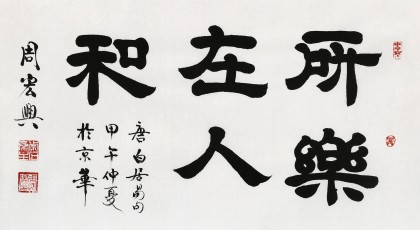 所樂
在人
和
唐白居易句
甲午仲夏
於京華
周宏興